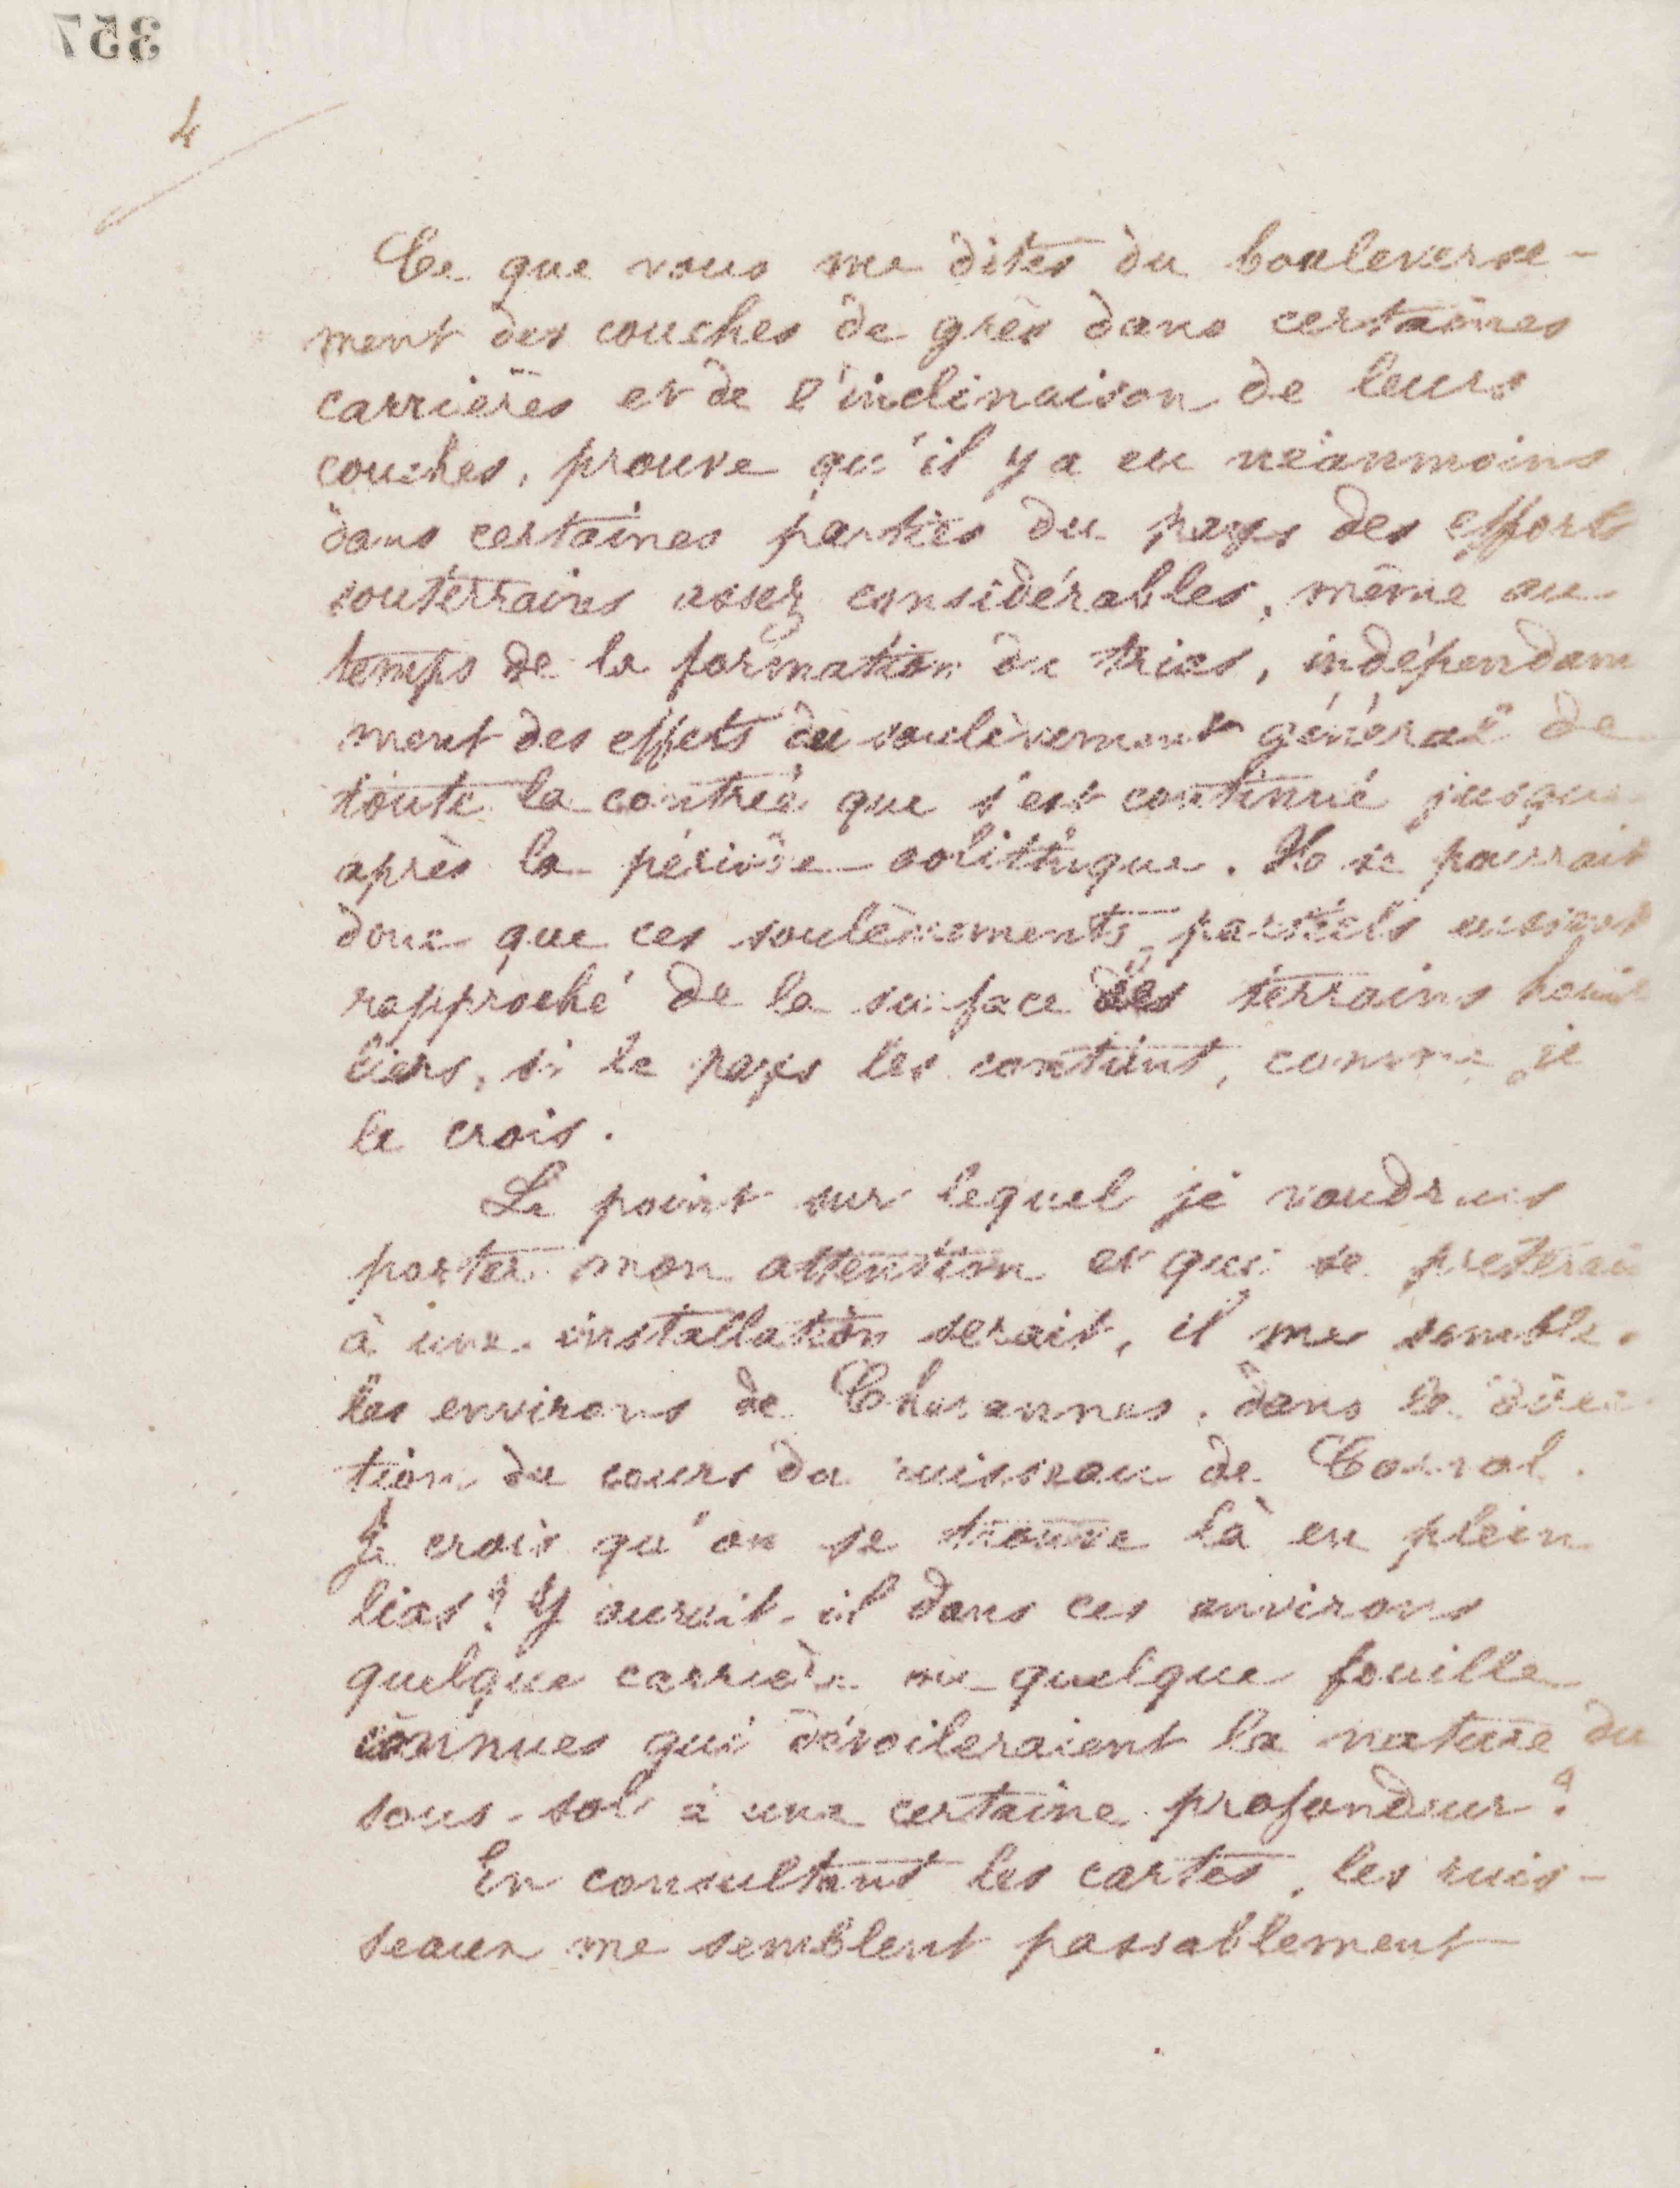 357
4
Ce que vous me dites du bouleverse-
ment des couches de grès dans certaines
carrières et de l'inclinaison de leurs
couches, prouve qu'il y a eu néanmoins
dans certaines parties du pays des efforts
souterrains assez considérables, même au
temps de la formation du trias, indépendam
ment des effets du soulèvement général de
toute la contrée que s'est continué jusque
après la période oolithique. Il se pourrait
donc que ces soulèvements partiels eussent
rapproché de la surface des terrains houil
liers, si le pays les contient, comme je
le crois.
Le point sur lequel je voudrais
porter mon attention et qui se prêterait
à une installation serait, il me semble,
les environs de dans la direc-
tion du cours du ruisseau de
Je crois qu'on se trouve là en plein
lias? Y aurait-il dans ces environs
quelque carrière ou quelque fouille
connues qui dévoileraient la nature du
sous-sol à une certaine profondeur?
En consultant les cartes, les ruis-
seaux me semblent passablement